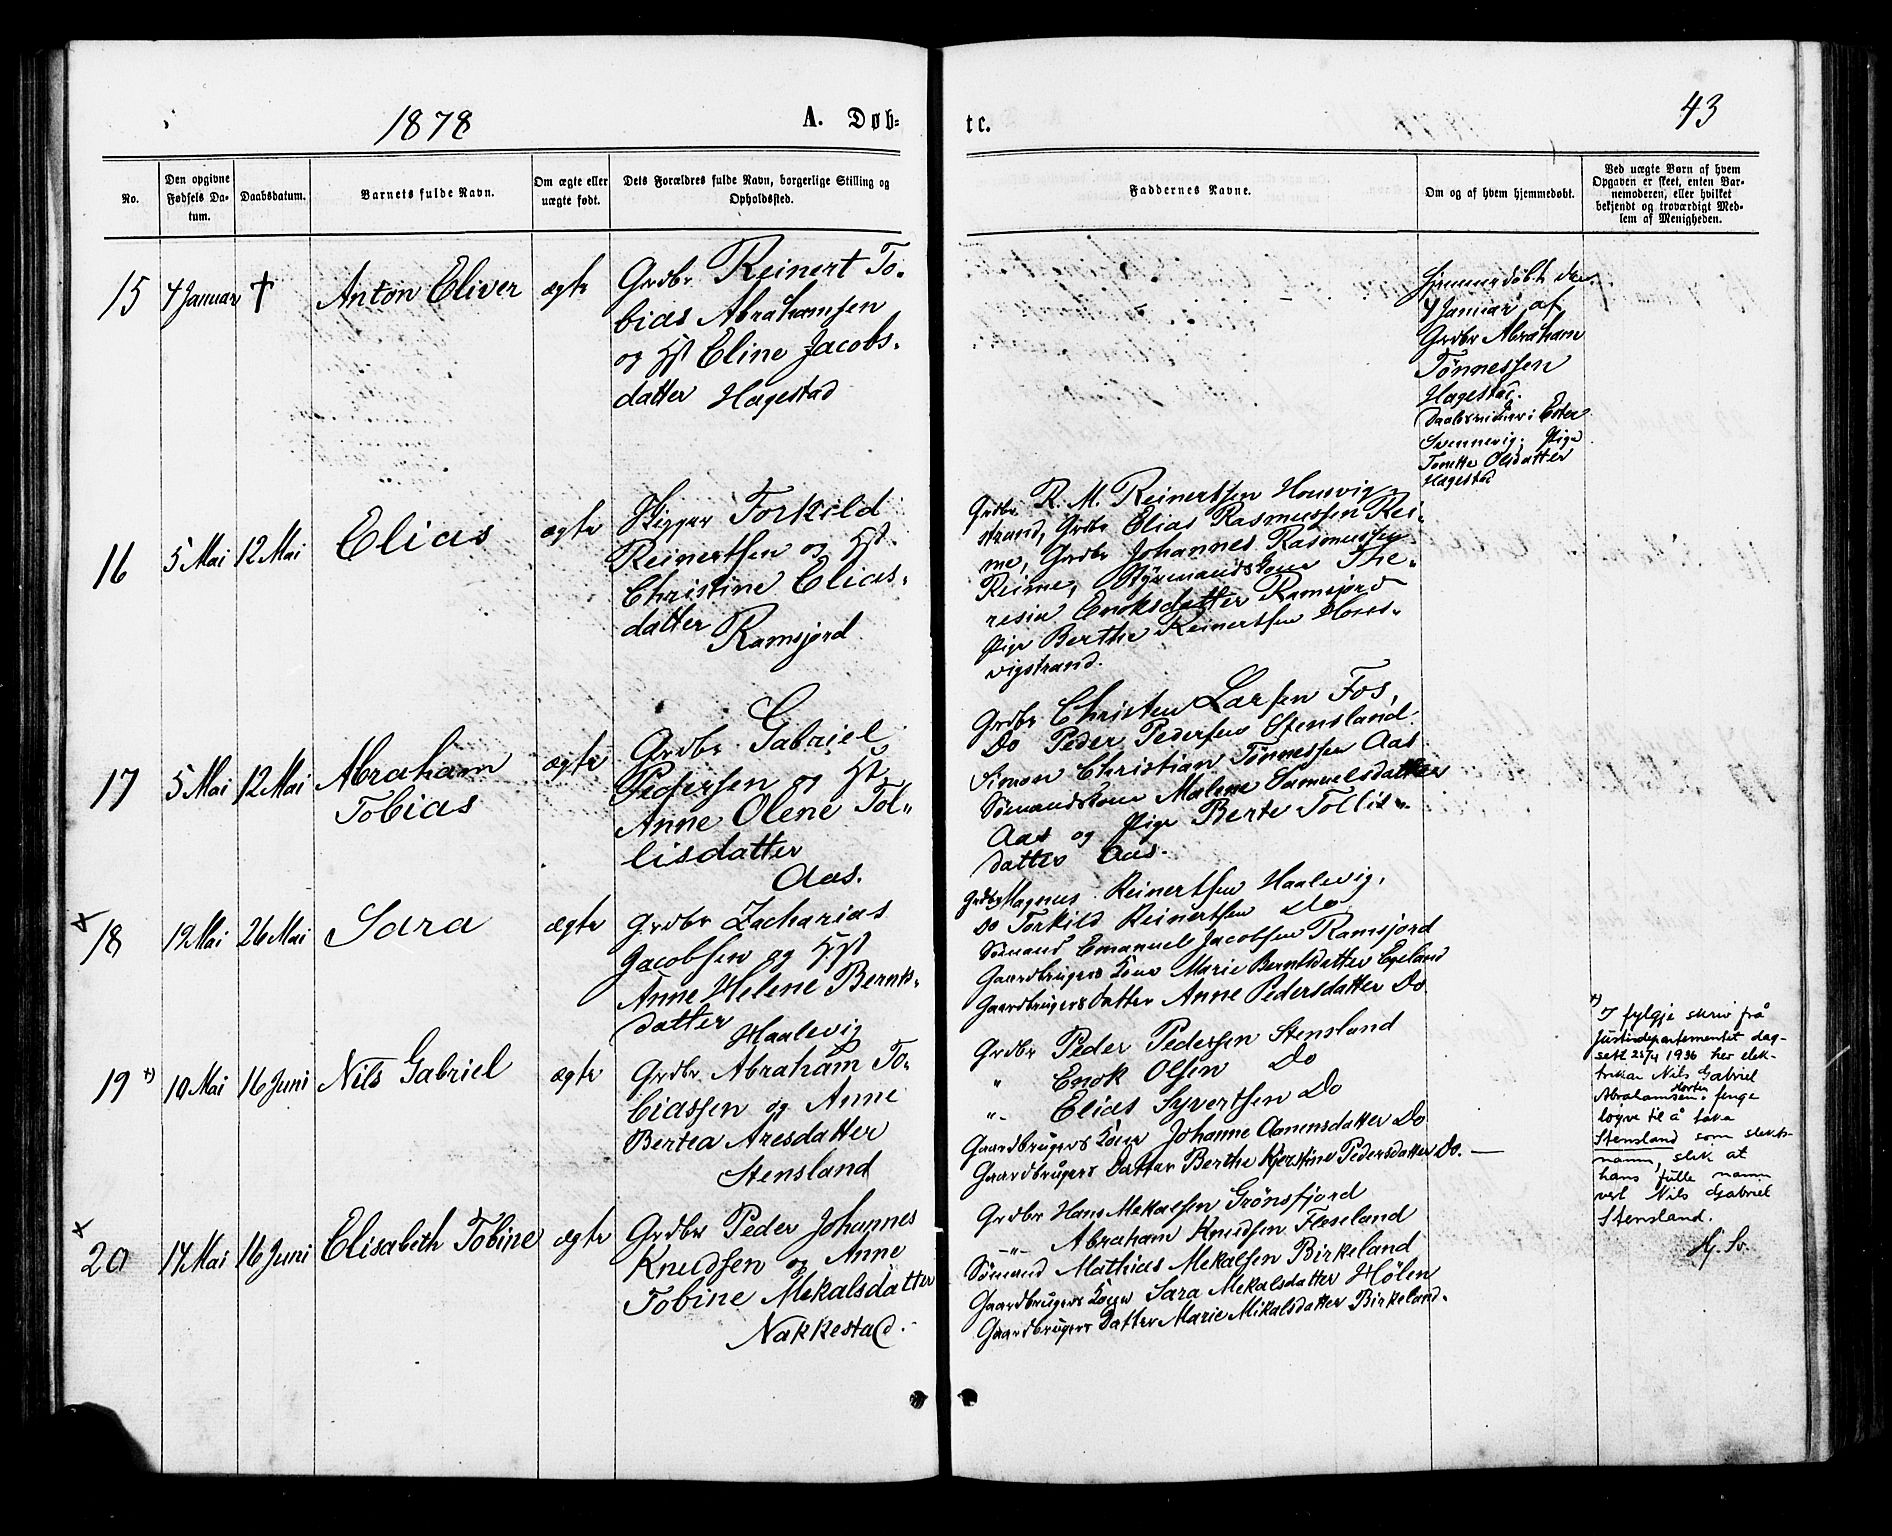 1878
A. Døb=
te.
43
No.
Den opgivne
Fødsels Da-
tum.
Daabsdatum.
Barnets fulde Navn.
Om ægte eller
uægte født.
Dets Forældres fulde Navn, borgerlige Stilling og
Opholdssted.
Faddernes Navne.
Om og af hvem hjemmedøbt.
Ved uægte Børn af hvem
Opgaven er skeet, enten Bar-
nemoderen, eller hvilket
bekjendt og troværdigt Med-
lem af Menigheden.
15
4 Januar
†
Anton Eliver
ægte
Grdbr Reinert To-
bias Abrahamsen
og Hst Eline Jacobs-
datter Hagestad
Hjemmedøbt den
4 Januar af
Grdbr Abraham
Tønnessen
Hagestad.
Daabsvidner: Ester
Svennevig, Pige
Tonette Olsdatter
Hagestad
16
5 Mai
12 Mai
Elias
ægte
Skipper Torkild
Reinertsen og Hst
Christine Elias-
datter
Ramsjord
Grdbr R. M. Reinertsen Housvig-
strand, Grdbr Elias Rasmussen Rei-
me, Grdbr Johannes Rasmussen
Reime, Styrmandskone The-
resia Enoksdatter Ramsjord
Pige Berthe Reinertsen Hous-
vigstrand.
17
5 Mai
12 Mai
Abraham
Tobias
ægte
Grdbr Gabriel
Pedersen og Hst
Anne Olene Tol-
lisdatter
Aas.
Grdbr Christen Larsen Fos,
Do Peder Pedersen Stensland
Simon Christian Tønnessen Aas
Sømandskone Malene Samuelsdatter
Aas og Pige Berte Tollis-
datter Aas.
x
18
19 Mai
26 Mai
Sara
ægte
Grdbr Zacharias
Jacobsen og Hst
Anne Helene Bernts-
datter
Haalevig
Grdbr Magnus Reinertsen Haalevig,
Do Torkild Reinertsen Do
Sømand Emanuel Jacobsen Ramsjord
Gaardbrugers Kone Marie Berntsdatter Egeland
Gaardbrugers Datter Anne Pedersdatter Do
19 x)
10 Mai
16 Juni
Nils Gabriel
ægte
Grdbr Abraham To-
biassen og Anne
Bertea Aresdatter
Stensland
Grdbr Peder Pedersen Stensland
" Enok Olsen Do
"- Elias Syvertsen Do
Gaardbrugers Kone Johanne Aanensdatter Do
Gaardbrugers Datter Berthe Kjerstine Pedersdatter Do. —
x) I fylgje skriv frå
Justisdepartementet dag-
sett 25/4 1936 her elek-
trikar Nils Gabriel
Abrahamsen,
fenge
løyve til å taka
Stensland som slekts-
namn, slik at
hans fulle namn
vert Nils Gabriel
Stensland.
Hj. Sv.
x
20
14 Mai
16 Juni
Elisabeth Tobine
ægte
Grdbr Peder Johannes
Knudsen og Anne
Tobine Mekalsdatter
Nakkestad.
Grdbr Hans Mekalsen Grønsfjord
-"- Abraham Knudsen Floseland
Sømand Mathias Mekalsen Birkeland
Gaardbrugers Kone Sara Mekalsdatter Hølen
Gaardbrugers Datter Marie Mikalsdatter Birkeland.